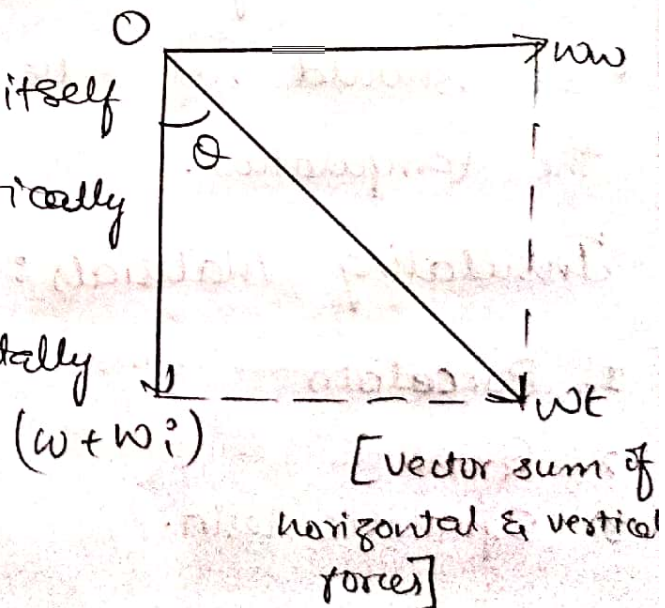 O
ww
itself
θ
ically
tally
(w+wi)
wt
[vector sum of
horizontal & vertical
forces]